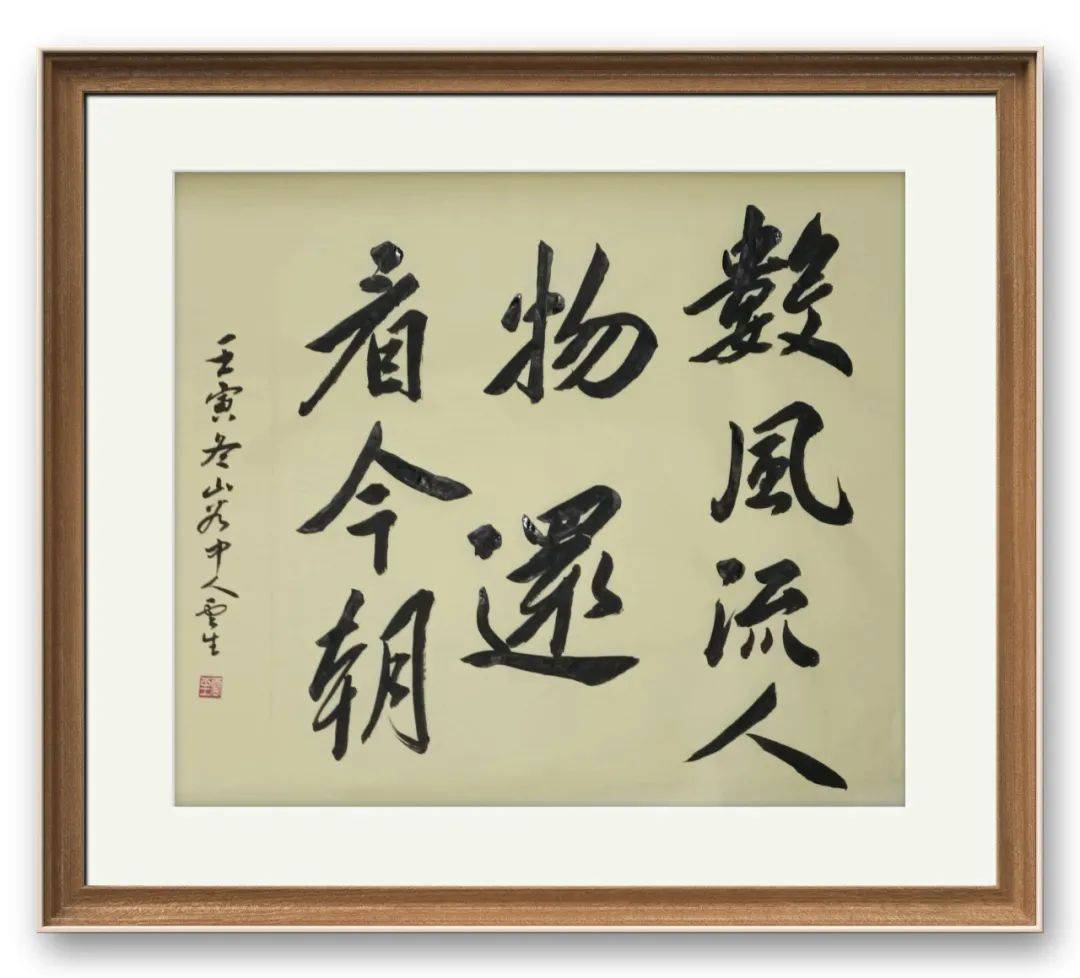 數風流人
物還
看今朝
壬寅冬山谷中人雲生